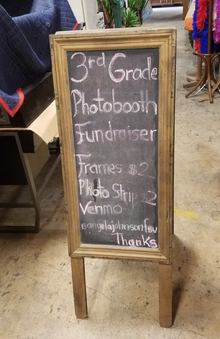 3rd Grade
Photobooth
Fundraiser
Frames $2
Photo Strip $2
Venmo
@angelajohnsonfew
Thanks